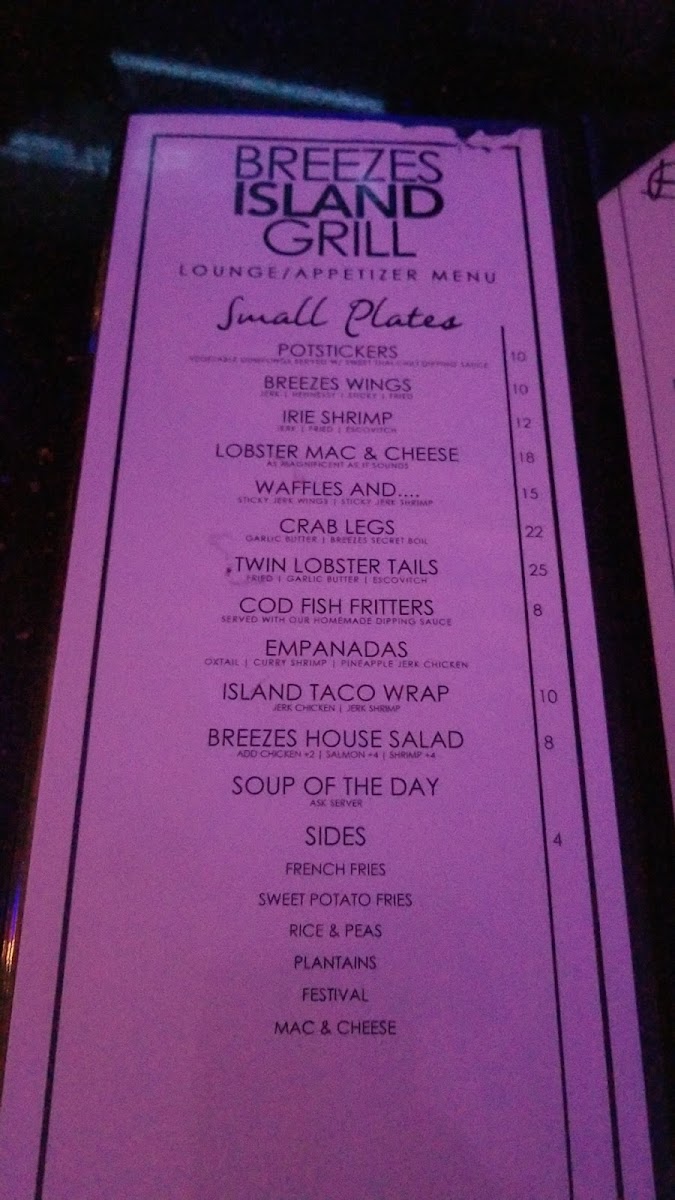 BREEZES
ISLAND
GRILL
LOUNGE/APPETIZER MENU
Small Plates
POTSTICKERS 10
VEGETABLE DUMPLINGS SERVED W/ SWEET THAI CHILI DIPPING SAUCE
BREEZES WINGS 10
JERK | HENNESSY | STICKY | FRIED
IRIE SHRIMP 12
JERK | FRIED | ESCOVITCH
LOBSTER MAC & CHEESE 18
AS MAGNIFICENT AS IT SOUNDS
WAFFLES AND.... 15
STICKY JERK WINGS | STICKY JERK SHRIMP
CRAB LEGS 22
GARLIC BUTTER | BREEZES SECRET BOIL
TWIN LOBSTER TAILS 25
FRIED | GARLIC BUTTER | ESCOVITCH
COD FISH FRITTERS 8
SERVED WITH OUR HOMEMADE DIPPING SAUCE
EMPANADAS
OXTAIL | CURRY SHRIMP | PINEAPPLE JERK CHICKEN
ISLAND TACO WRAP 10
JERK CHICKEN | JERK SHRIMP
BREEZES HOUSE SALAD 8
ADD CHICKEN +2 | SALMON +4 | SHRIMP +4
SOUP OF THE DAY
ASK SERVER
SIDES 4
FRENCH FRIES
SWEET POTATO FRIES
RICE & PEAS
PLANTAINS
FESTIVAL
MAC & CHEESE